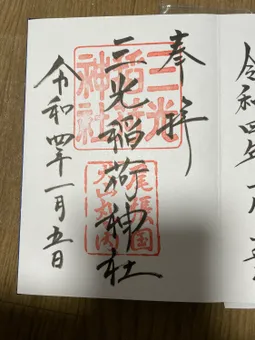 奉拝
三光稲荷神社
三光稲荷神社
尾張国犬山丸の内
令和四年一月五日
令和四年一月